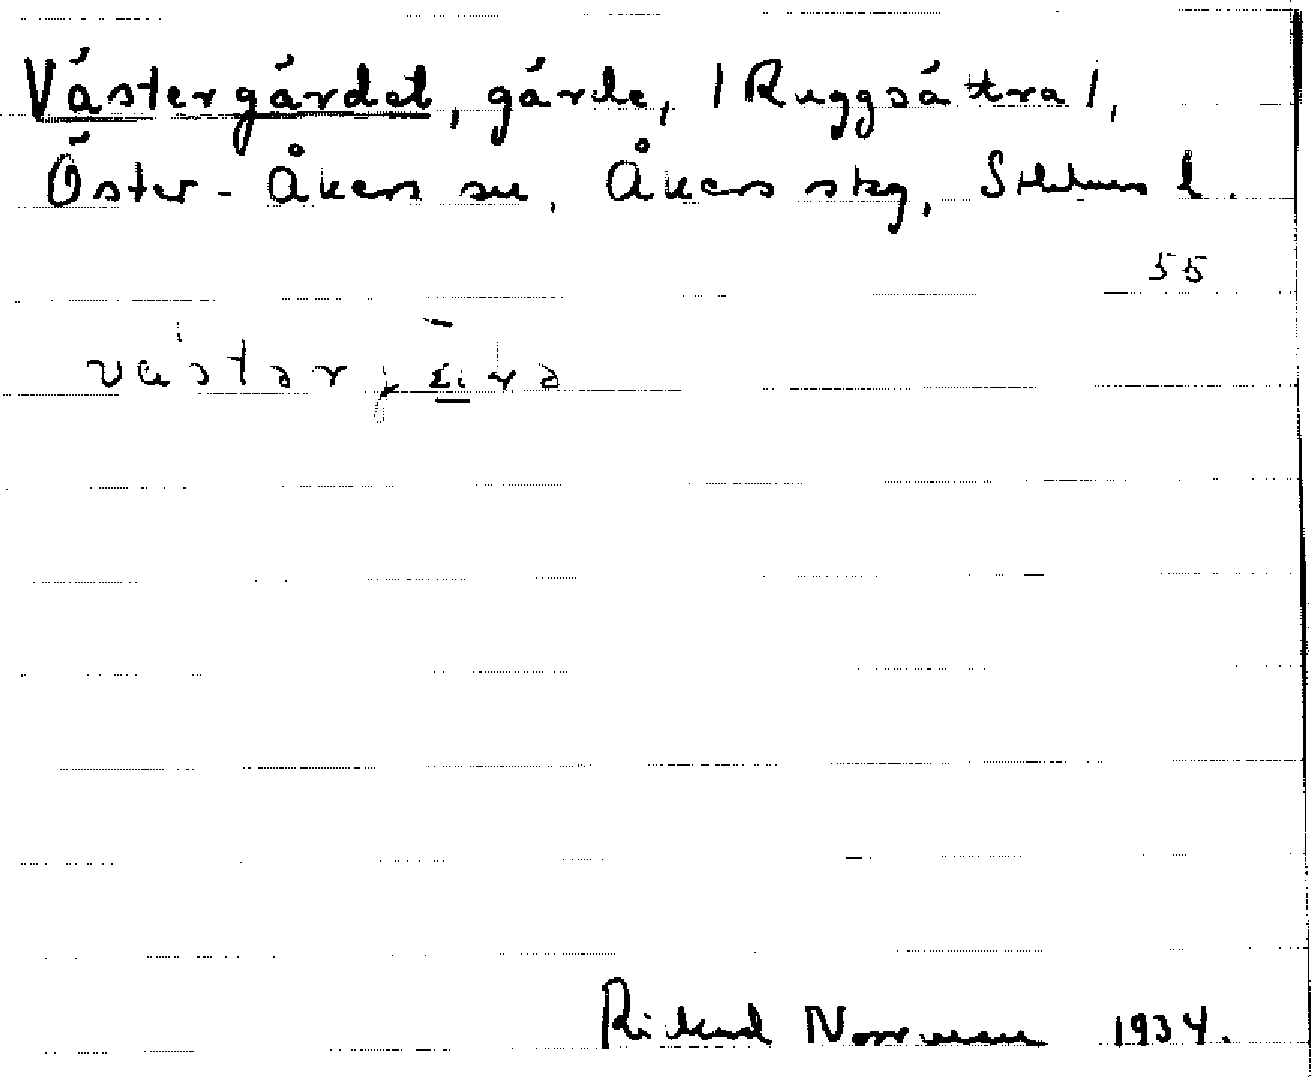 Västergärdet, gärde, /Ruggsätra/,
Öster-Åkers sn, Åkers skg, Sthlms l.
55
Rickard Norrman 1934.